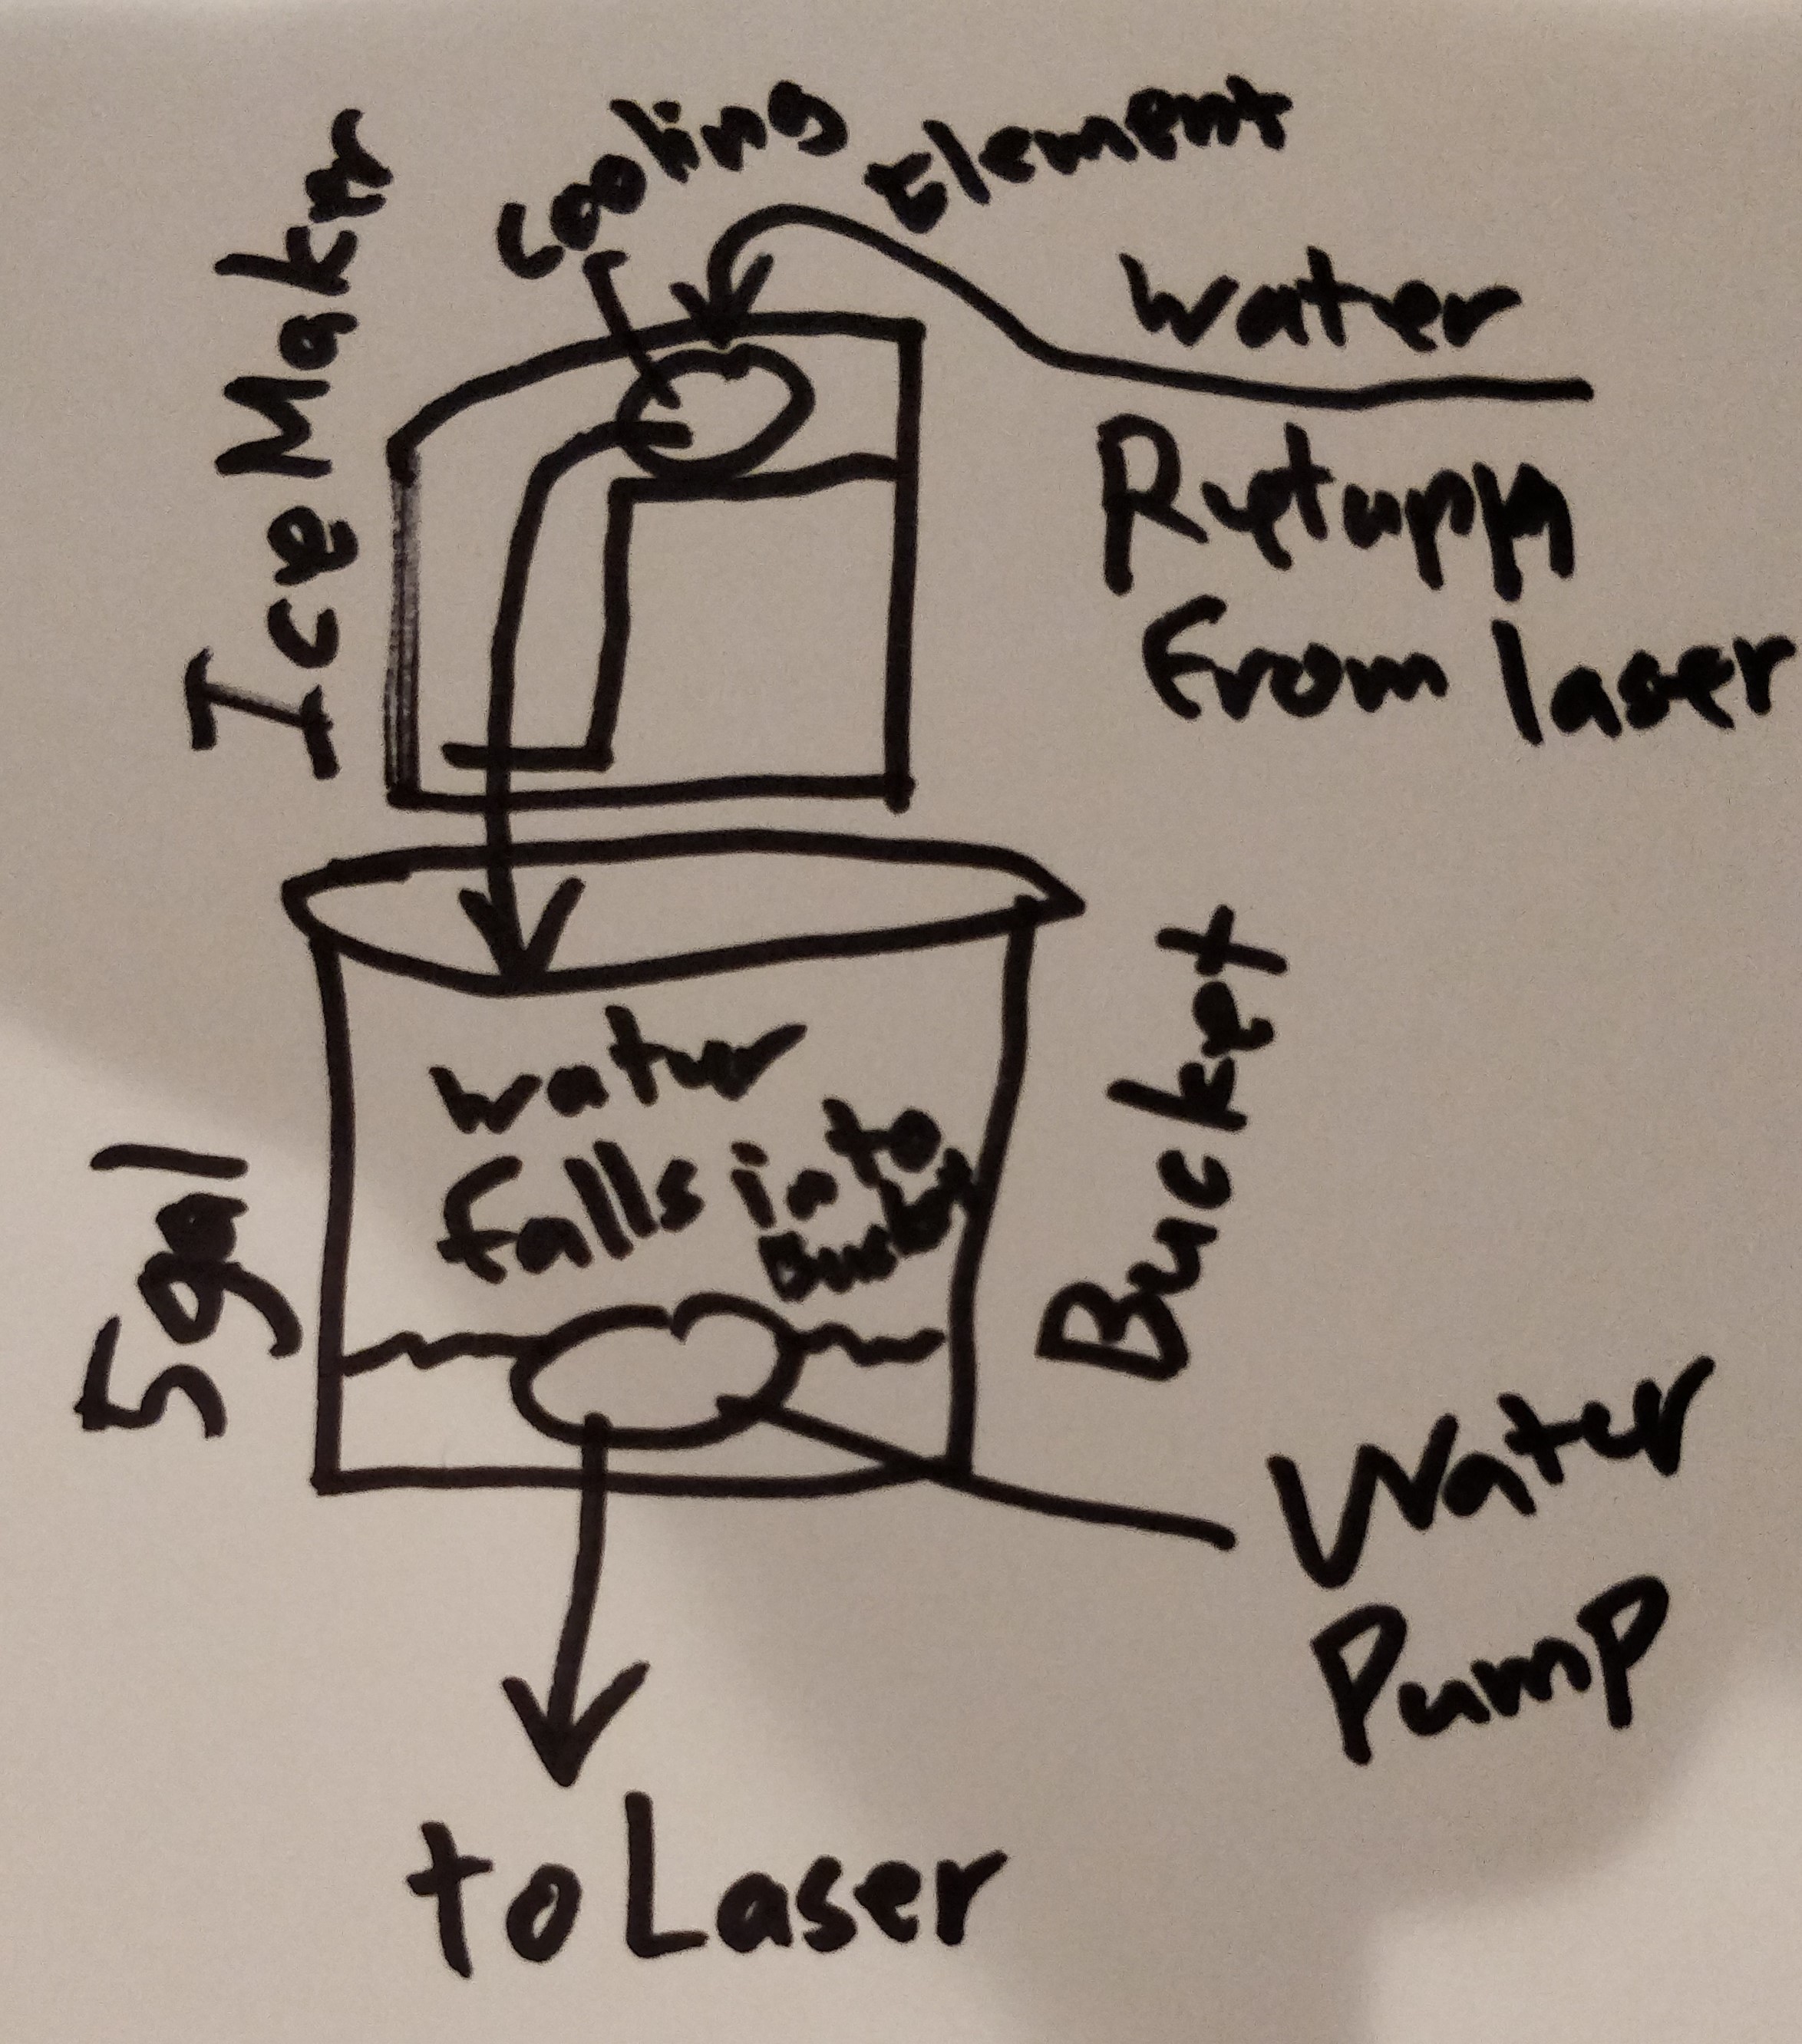 Cooling Element
Ice Maker
Water
Return
From laser
water
falls into
Bucket
5gal
Bucket
Water
Pump
to Laser